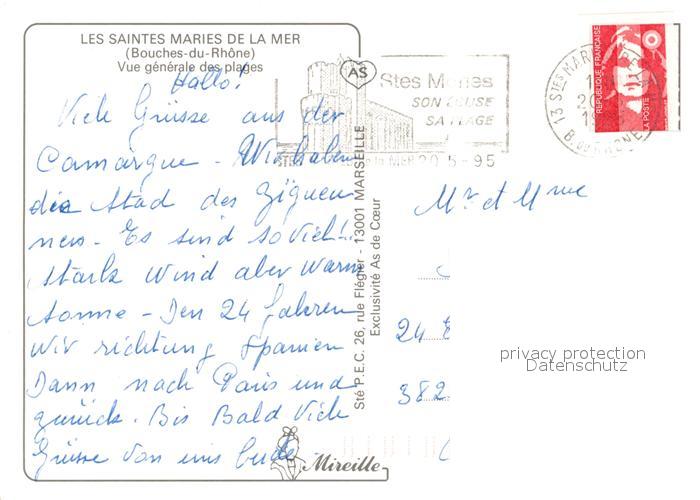 LES SAINTES MARIES DE LA MER
(Bouches-du-Rhône)
Vue générale des plages
Hallo!
Viele Grüsse aus der
Camargue - Wir haben
die Stad des Zigeuner
ners. Es sind so viel!!
Stark wind aber Warm
Sonne - Den 24 fahren
Wir richtung Spanien
Dann nach Paris und
zurück. Bis Bald Viele
Grüsse von uns beide.
Mireille
Sté P.E.C. 26, rue Flégier - 13001 MARSEILLE
Exclusivité As de Cœur
AS
Stes Maries
SON EGLISE
SA PLAGE
MER 20-5-95
13 STES MAR
B. DU RHONE
REPUBLIQUE FRANÇAISE
LA POSTE
Mr et Mme
24
382
privacy protection
Datenschutz